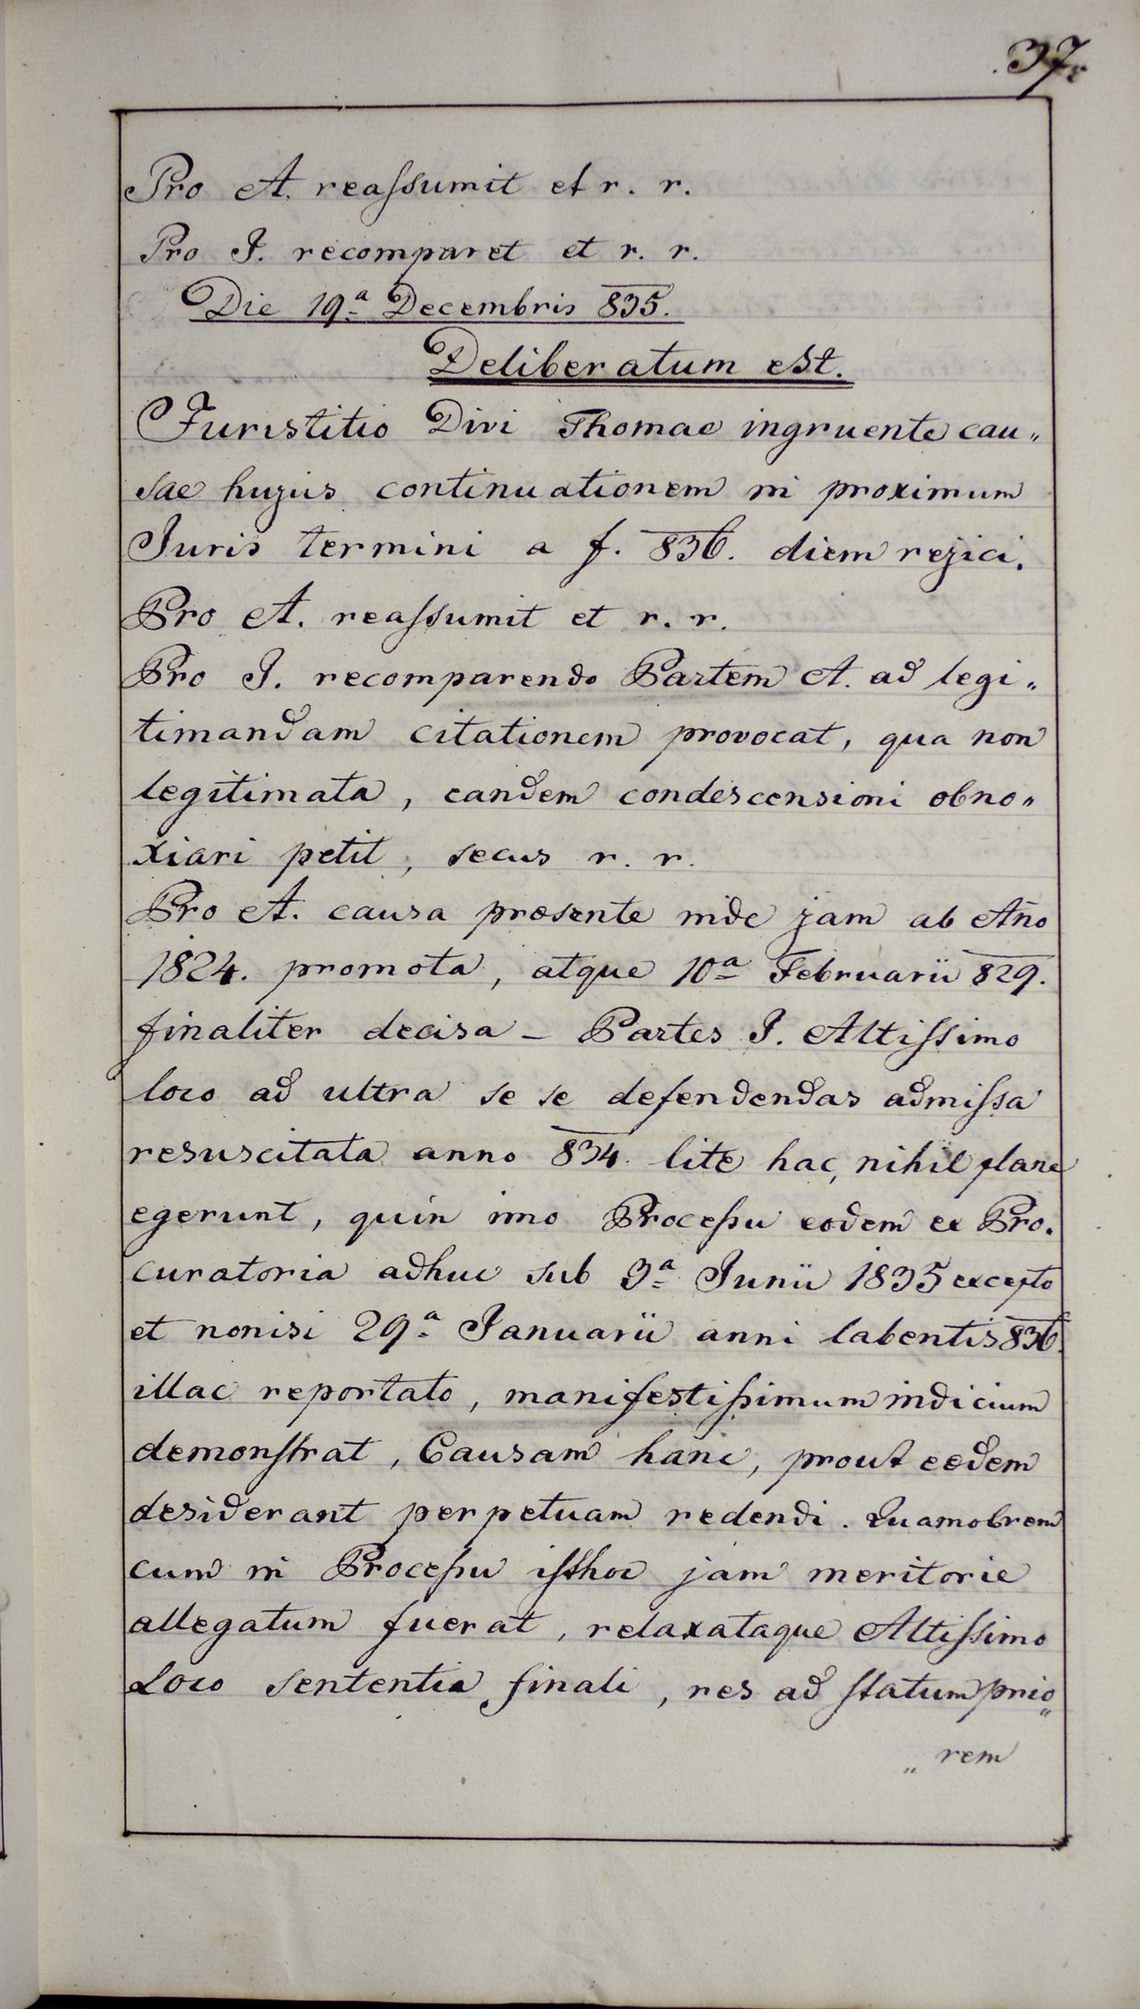 37.
Pro A. reaſsumit et r. r.
Pro I. recomparet et r. r.
Die 19ª Decembris 835.
Deliberatum est.
Juristitio Divi Thomae ingruente cau„
sae hujus continuationem in proximum
Juris termini a f. 836. diem rejici.
Pro A. reaſsumit et r. r.
Pro I. recomparendo Partem A. ad legi„
timandam citationem provocat, qua non
legitimata, eandem condescensioni obno„
xiari petit, secus r. r.
Pro A. causa praesente inde jam ab Año
1824. promota, atque 10ª Februarii 829.
finaliter decisa – Partes I. Altiſsimo
loco ad ultra se se defendendas admiſsa
resuscitata anno 834. lite hac, nihil plane
egerunt, quin imo Proceſsu eodem ex Pro.
curatoria adhuc sub 3ª Junii 1835 excepto
et nonisi 29ª Januarii anni labentis 836.
illac reportato, manifestiſsimum indicium
demonſtrat, Causam hanc, prout eodem
desiderant perpetuam redendi. Quamobrem
cum in Proceſsu iſthoc jam meritorie
allegatum fuerat, relaxataque Altiſsimo
Loco sententia finali, res ad ſtatum prio„
„rem